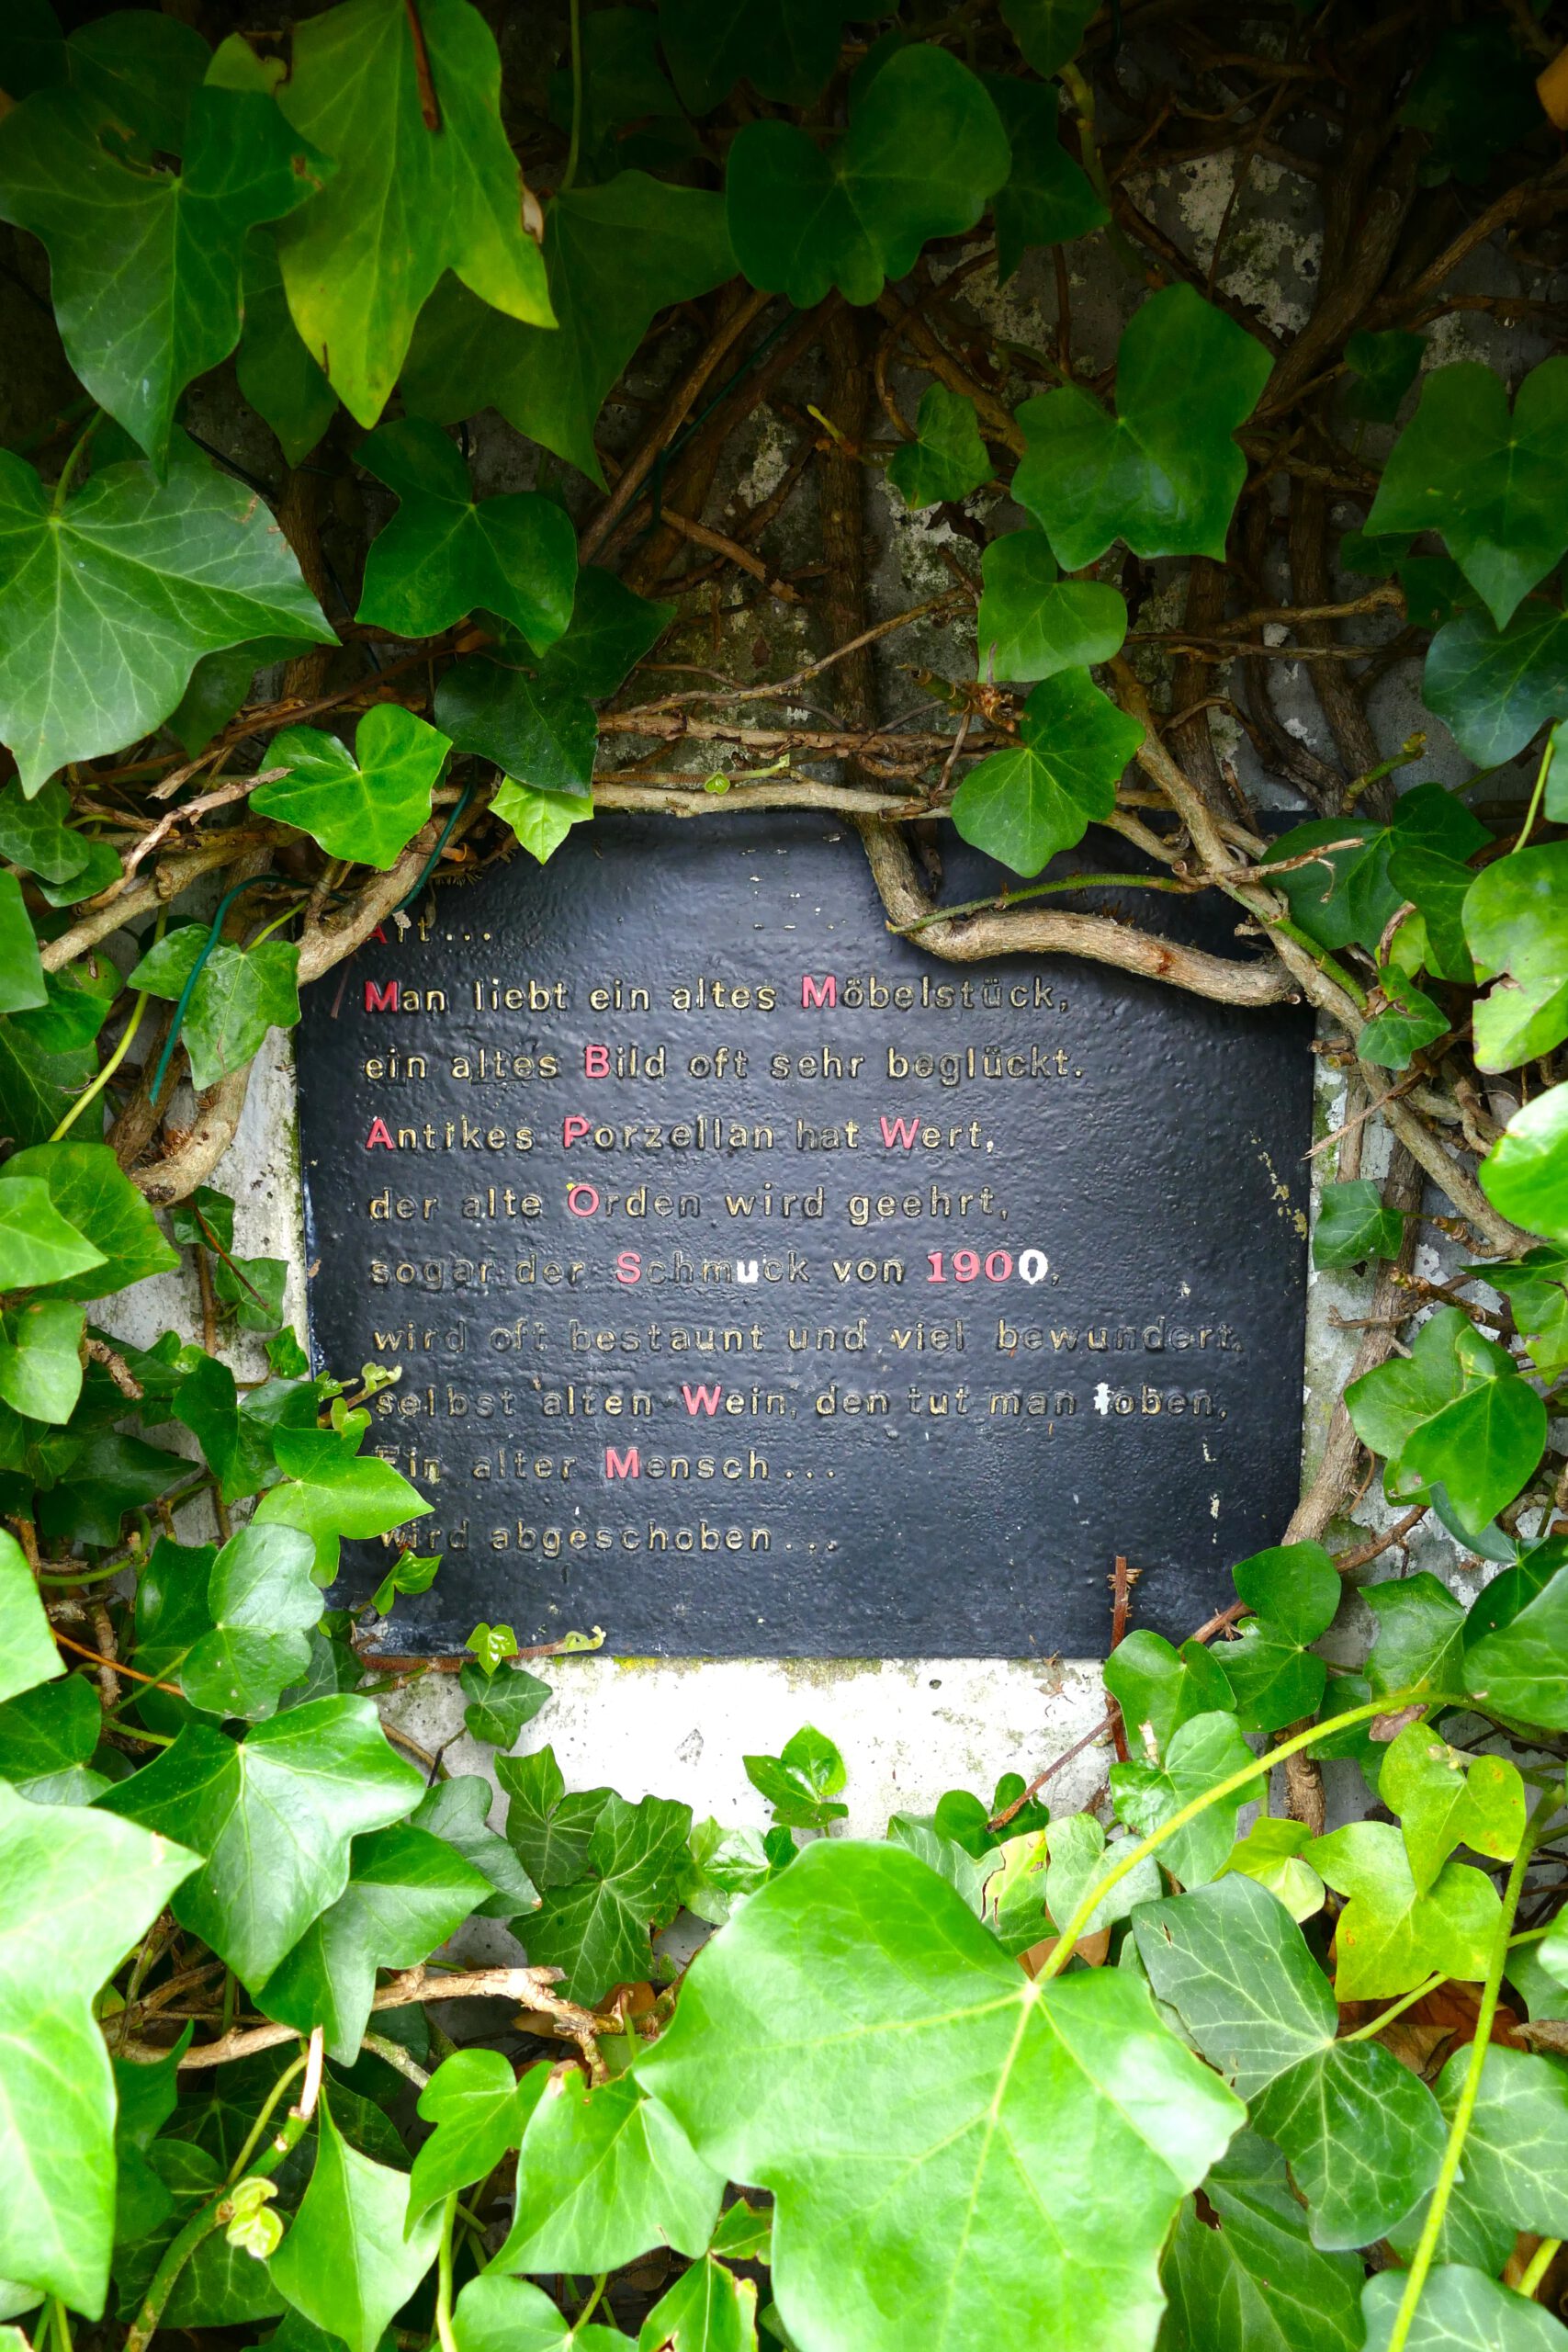 Alt...
Man liebt ein altes Möbelstück,
ein altes Bild oft sehr beglückt.
Antikes Porzellan hat Wert,
der alte Orden wird geehrt,
sogar der Schmuck von 1900,
wird oft bestaunt und viel bewundert,
selbst alten Wein, den tut man loben,
Ein alter Mensch...
wird abgeschoben...